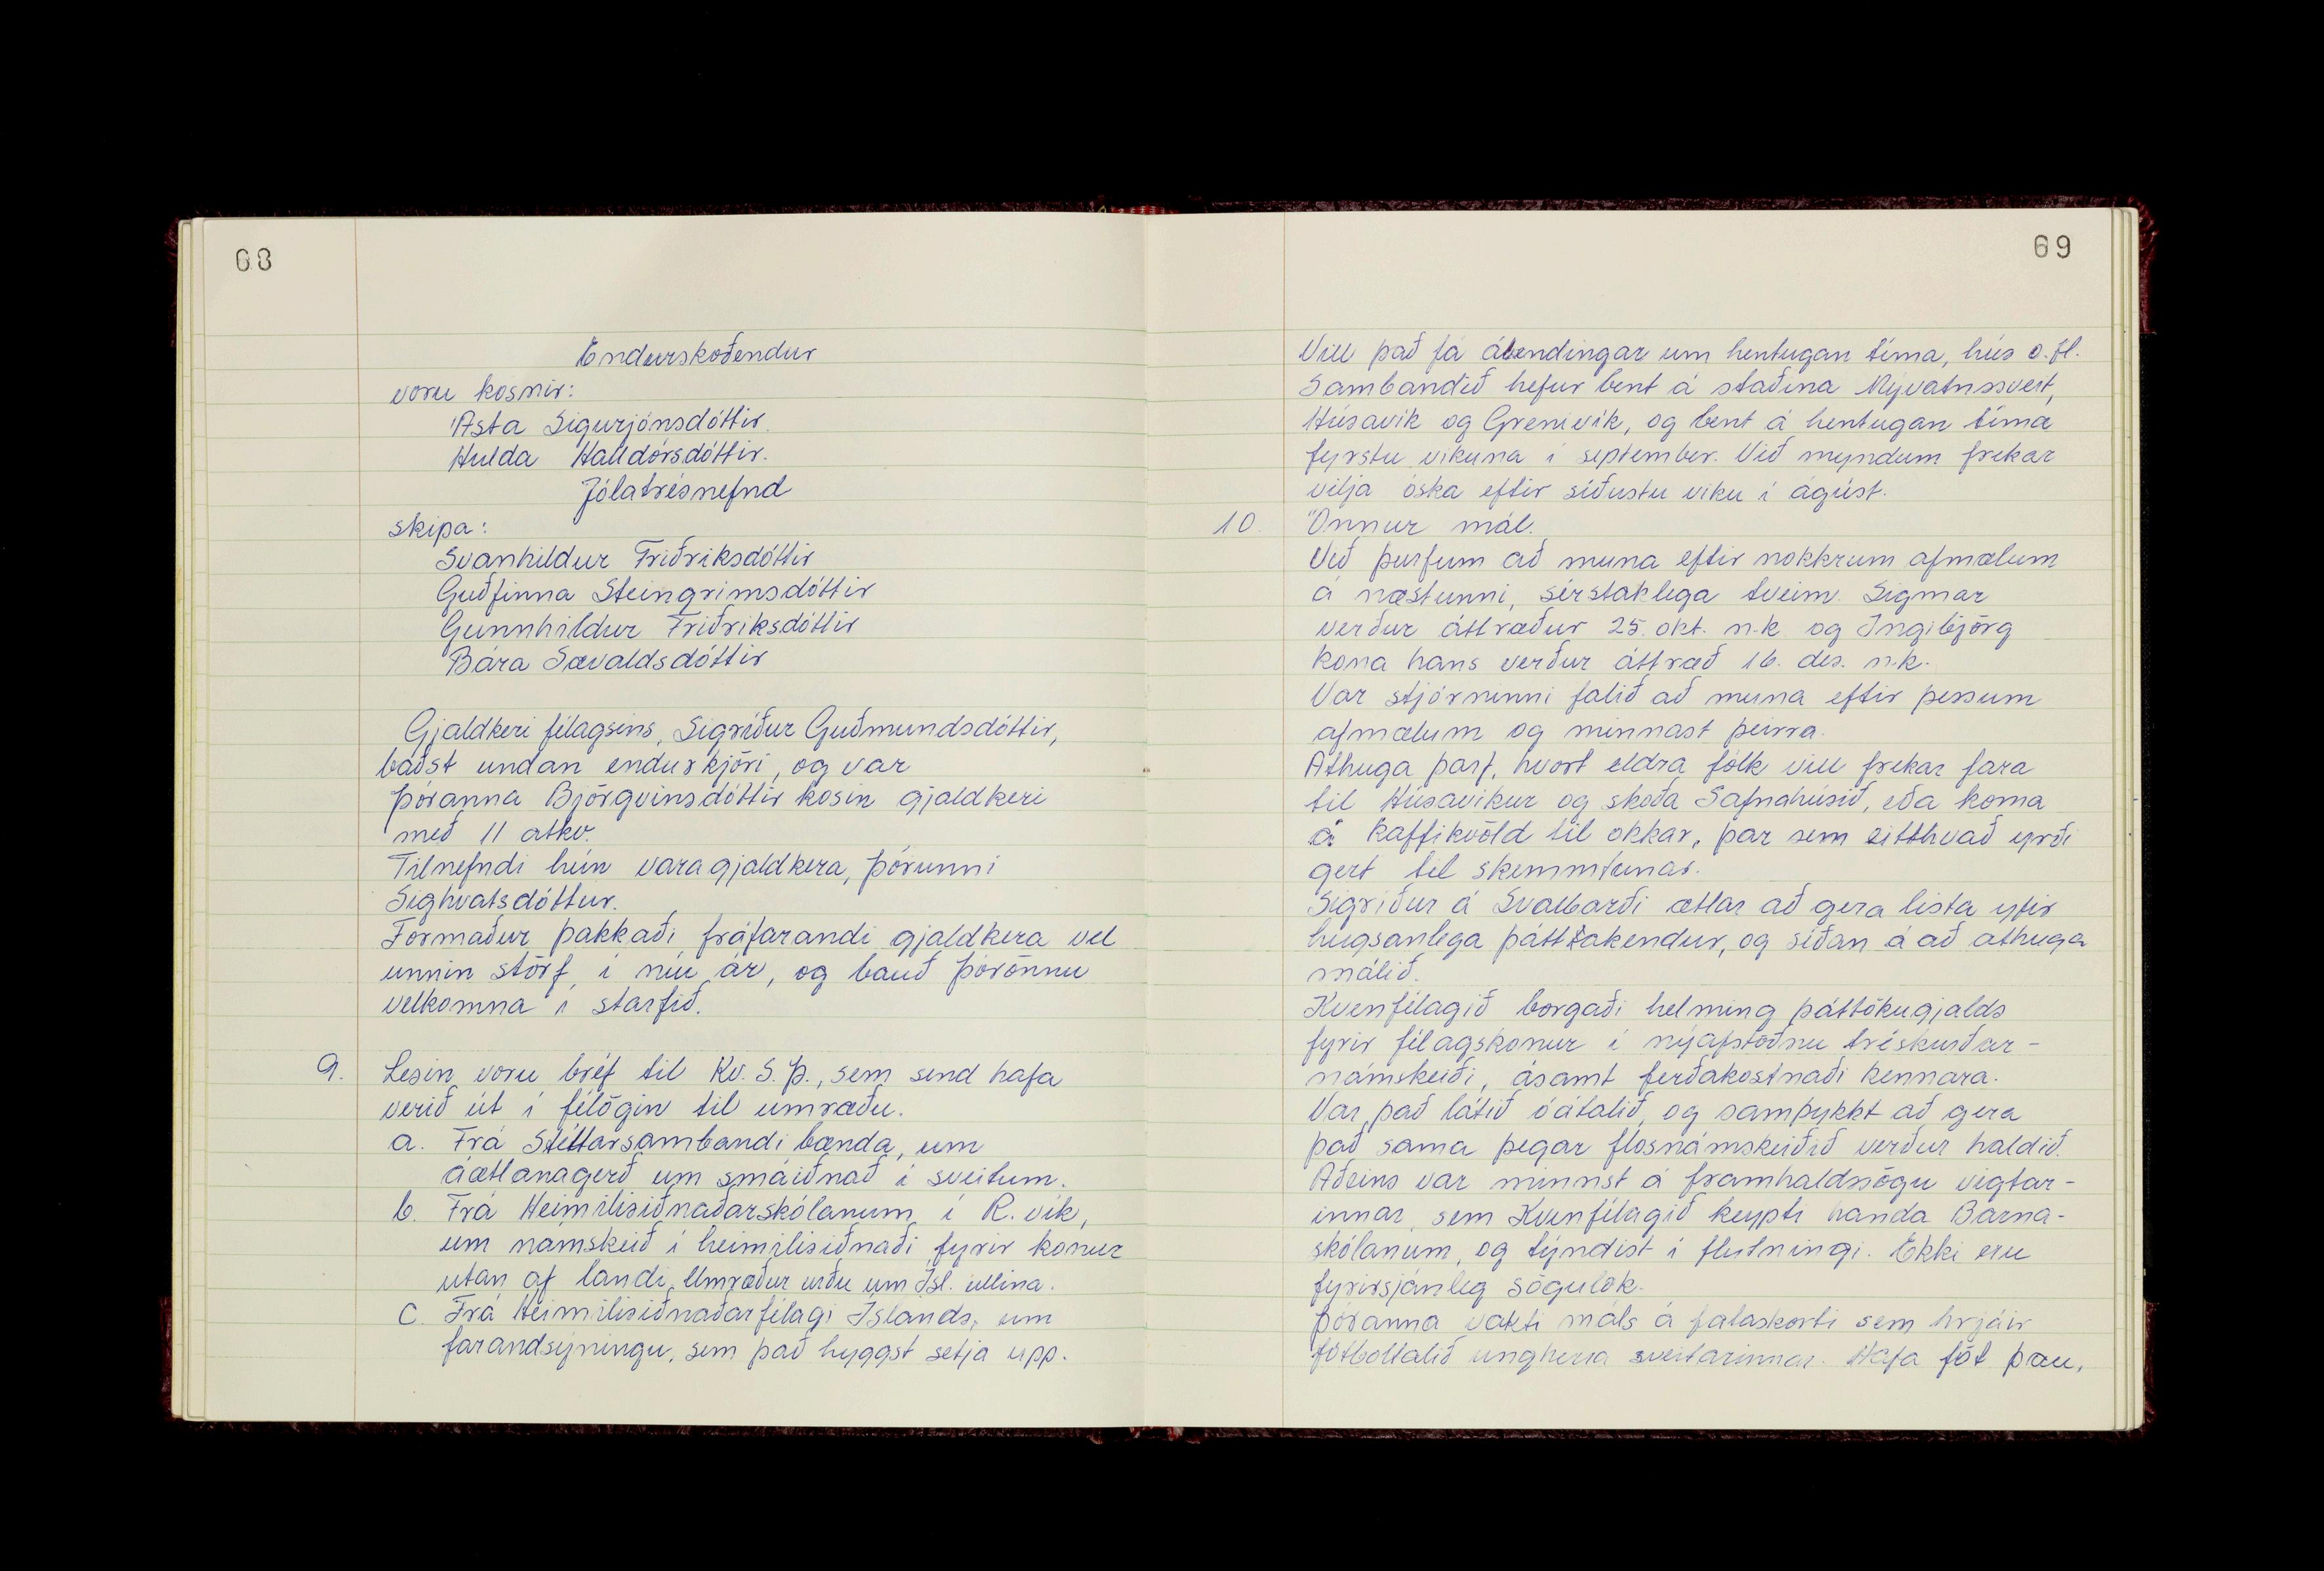 68
Endurskoðendur
voru kosnir:
Ásta Sigurjónsdóttir.
Hulda Halldórsdóttir.
Jólatrésnefnd
skipa:
Svanhildur Friðriksdóttir
Guðfinna Steingrímsdóttir
Gunnhildur Friðriksdóttir
Bára Sævaldsdóttir
Gjaldkeri félagsins, Sigríður Guðmundsdóttir,
baðst undan endurkjöri, og var
Þóranna Björgvinsdóttir kosin gjaldkeri
með 11 atkv.
Tilnefndi hún varagjaldkera, Þórunni
Sighvatsdóttur.
Formaður þakkaði fráfarandi gjaldkera vel
unnin störf, í níu ár, og bauð Þórönnu
velkomna í starfið.
9. Lesin voru bréf til Kv. S. Þ., sem send hafa
verið út í félögin til umræðu.
a. Frá Stéttarsambandi bænda, um
áætlanagerð um smáiðnað í sveitum.
b. Frá Heimilisiðnaðarskólanum í R.vík,
um námskeið í heimilisiðnaði fyrir konur
utan af landi. Umræður urðu um Ísl. ullina.
c. Frá Heimilisiðnaðarfélagi Íslands, um
farandsýningu, sem það hyggst setja upp.
69
Vill það fá ábendingar um hentugan tíma, hús o.fl.
Sambandið hefur bent á staðina Mývatnssveit,
Húsavík og Grenivík, og bent á hentugan tíma
fyrstu vikuna í september. Við myndum frekar
vilja óska eftir síðustu viku í ágúst.
10. Önnur mál.
Við þurfum að muna eftir nokkrum afmælum
á næstunni, sérstaklega tveim. Sigmar
verður áttræður 25. okt. n.k. og Ingibjörg
kona hans verður áttræð 16. des. n.k.
Var stjórninni falið að muna eftir þessum
afmælum og minnast þeirra.
Athuga þarf, hvort eldra fólk vill frekar fara
til Húsavíkur og skoða Safnahúsið, eða koma
á kaffikvöld til okkar, þar sem eitthvað yrði
gert til skemmtunar.
Sigríður á Svalbarði ætlar að gera lista yfir
hugsanlega þátttakendur, og síðan á að athuga
málið.
Kvenfélagið borgaði helming þáttökugjalds
fyrir félagskonur í nýafstöðnu tréskurðar-
námskeiði, ásamt ferðakostnaði kennara.
Var það látið óátalið, og samþykkt að gera
það sama þegar flosnámskeiðið verður haldið.
Aðeins var minnst á framhaldssögu vigtar-
innar, sem Kvenfélagið keypti handa Barna-
skólanum, og týndist í flutningi. Ekki eru
fyrirsjánleg sögulok.
Þóranna vakti máls á fataskorti sem hrjáir
fótboltalið ungherra sveitarinnar. Hafa föt þau,